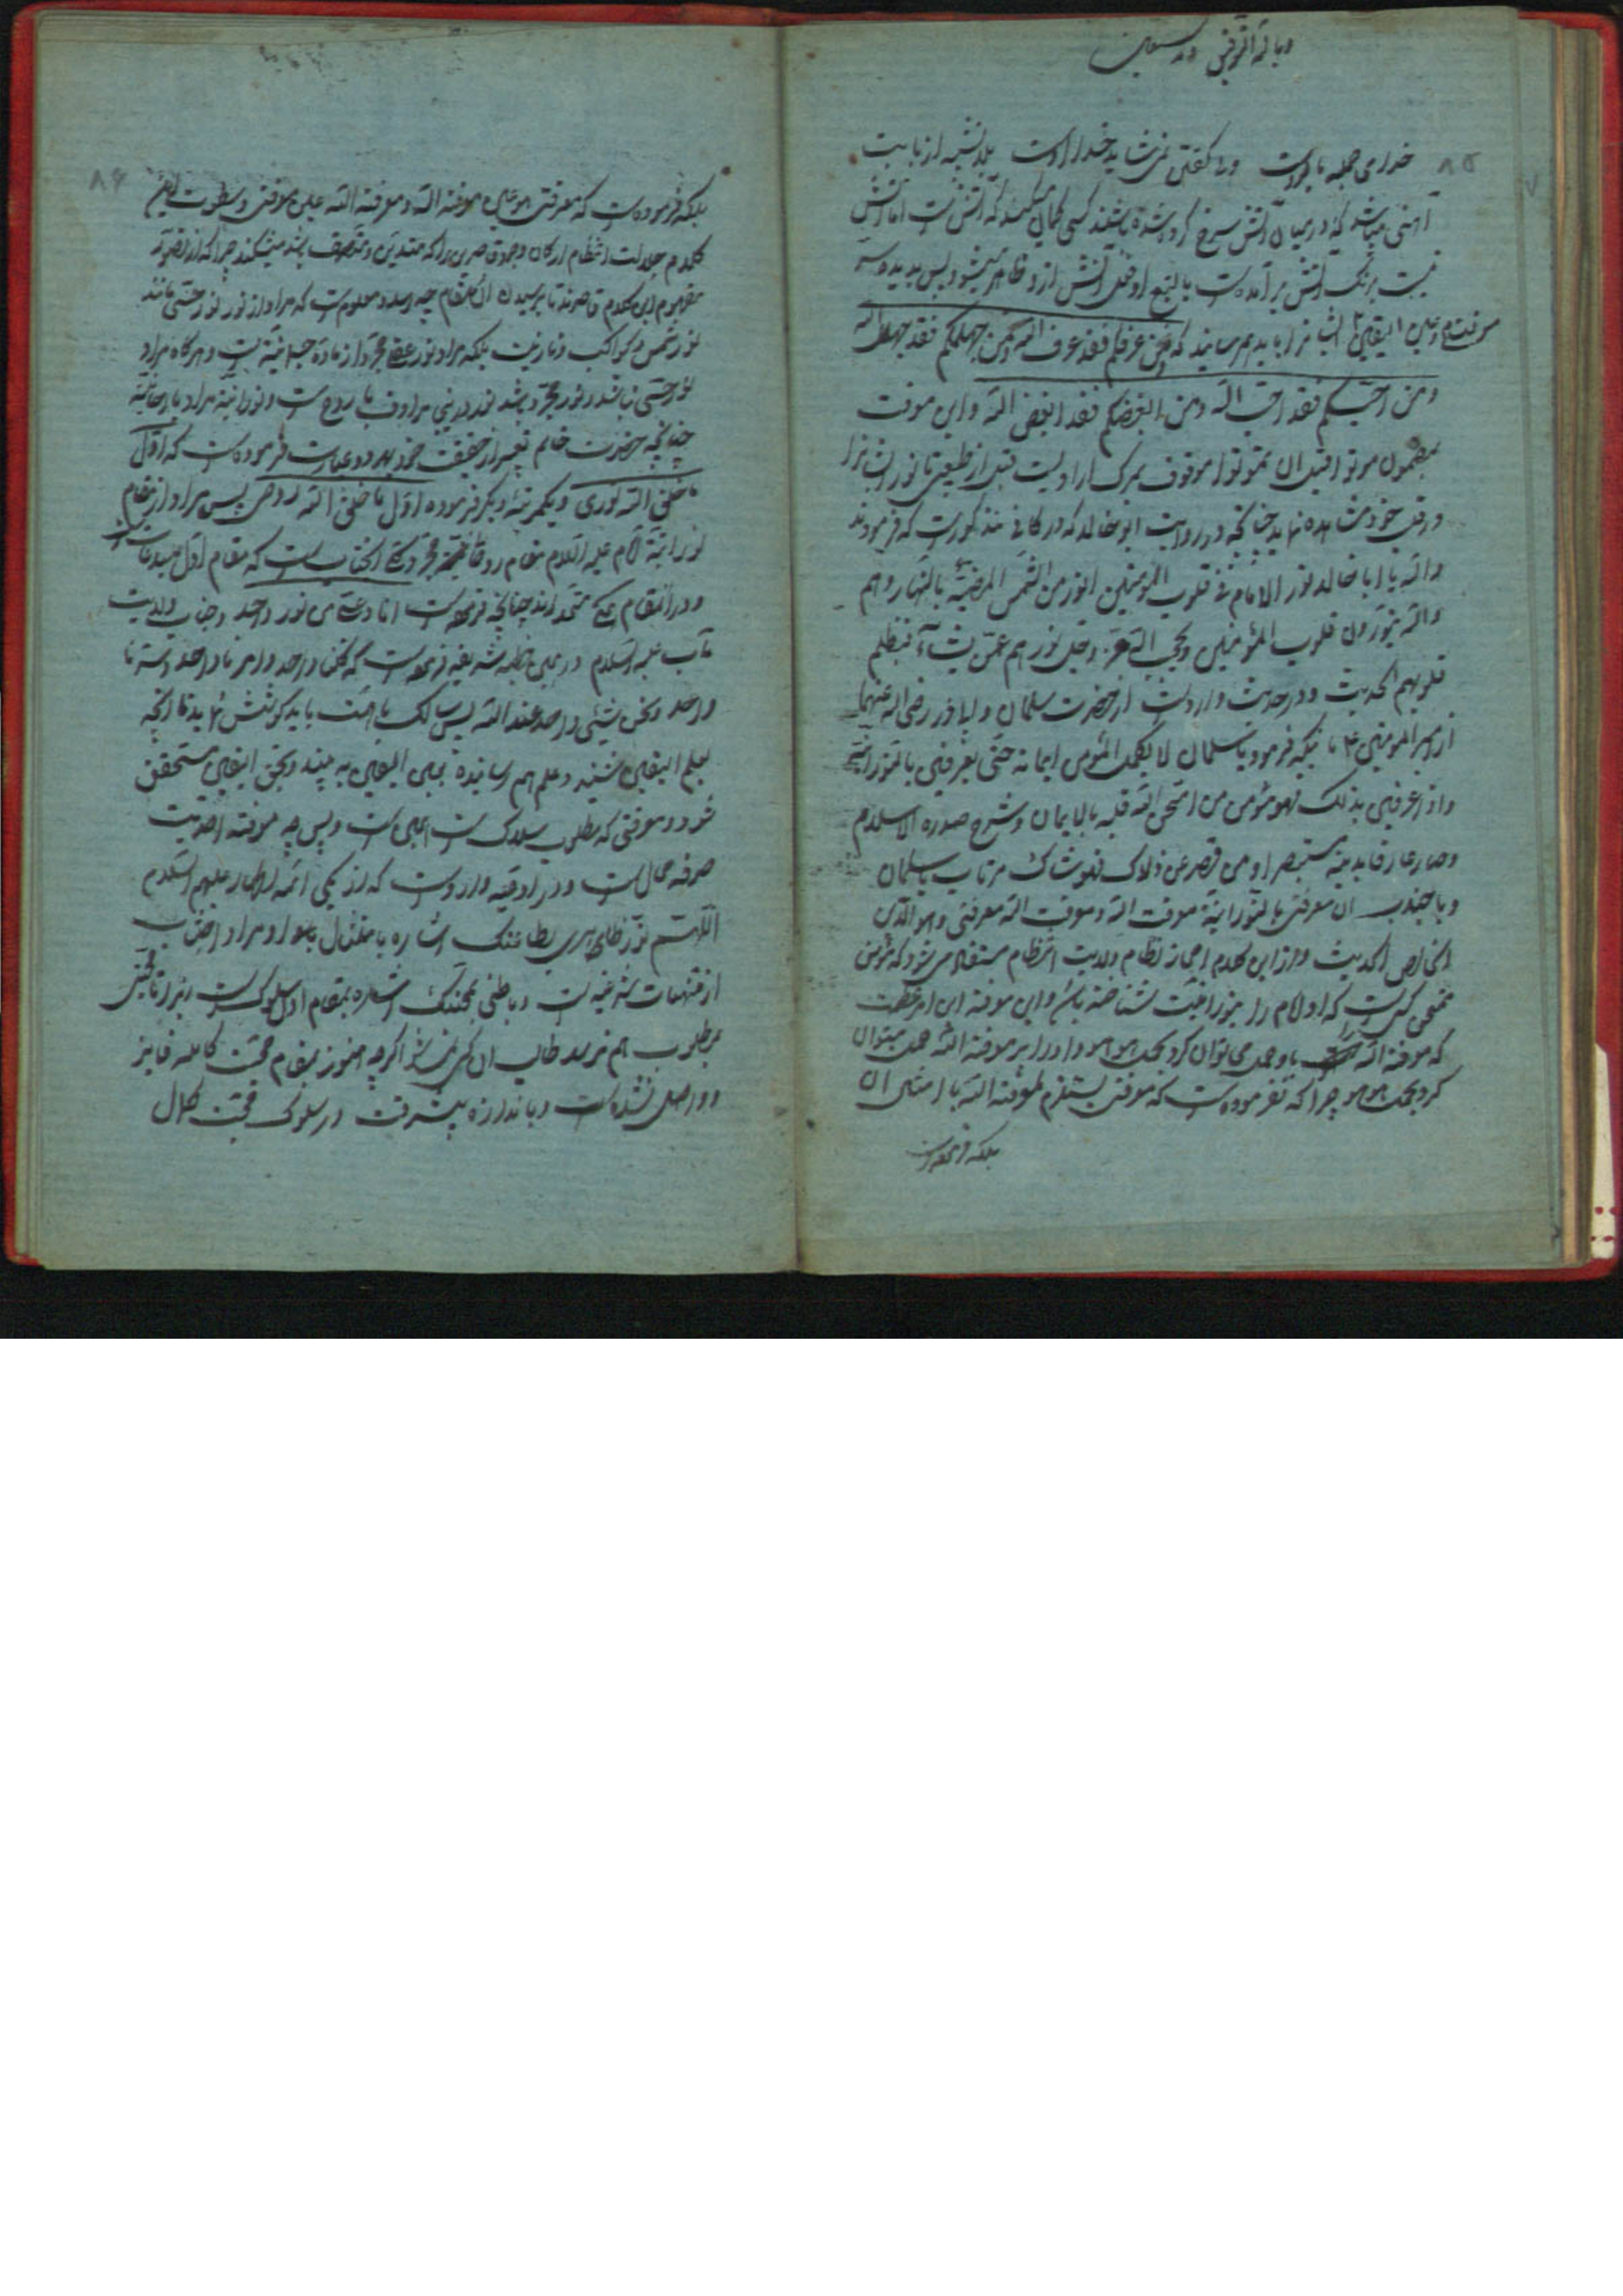 وبالله التوفیق وبه نستعین
۸۵
خداری جمله با وجود است ولی گفتن نمی‌شاید خدا را اوست بلا تشبیه از بابت
آهنی میباشد که در میان آتش سرخ کرده شده باشند کسی گمان میکند که آتش است اما آتش
نیست برنگ آتش برآمده است بالتبع او فعل آتش ازو ظاهر میشود پس بدیده
معرفت و عین الیقین ایشانرا باید بهم رسانید که من عرفکم فقد عرف الله ومن جهلکم فقد جهل الله
ومن احبکم فقد احب الله ومن ابغضکم فقد ابغض الله واین معرفت
بمضمون موتوا قبل ان تموتوا موقوف بمرگ ارادیست قبل از طبیعی تا نور ایشانرا
در قلب خود مشاهده نماید چنانچه در روایت ابو خالد که در کافی مذکور است که فرمودند
والله یا ابا خالد لنور الامام فی قلوب المؤمنین انور من الشمس المضیئة بالنهار وهم
والله ینورون قلوب المؤمنین ویحجب الله عز وجل نورهم عمن یشاء فتظلم
قلوبهم الحدیث ودر حدیث وارد است از حضرت سلمان و ابا ذر رضی الله عنهما
از امیر المومنین ع تا اینکه فرمود یا سلمان لا یکمل المؤمن ایمانه حتی یعرفنی بالنورانیة
واذا عرفنی بذلک فهو مؤمن من امتحن الله قلبه بالایمان وشرح صدره الاسلام
وصار عارفا بدینه مستبصرا ومن قصر عن ذلاک فهو شاک مرتاب یا سلمان
ویا جندب ان معرفتی بالنورانیة معرفت الله ومعرفت الله معرفتی وهو الدین
الخالص الحدیث واز این کلام اعجاز نظام ولایت انتظام مستفاد میشود که مؤمن
ممتحن کسیست که او امام را بنورانیت شناخته باشد و این معرفة این امر عظمت
که معرفة الله را باو حمل می توان کرد بحمل هو هو واورا بر معرفة الله حمل میتوان
کرد بحمل هو هو چرا که نفرموده است که معرفتی یستلزم لمعرفة الله یا امثال ان
بلکه فرموده است
۸۶
بلکه فرموده است که معرفتی هو عین معرفة الله ومعرفة الله عین معرفتی وسطوت این
کلام جلالت انتظام ارکان وجود قاصرین را که متدین ومتصف باشد میشکند چرا که از تصور
مفهوم این کلام قاصرند تا برسیدن ان مقام چه رسد ومعلوم است که مراد از نور نور حسی مانند
نور شمس وکواکب ونار نیست بلکه مراد نور عقلی مجرد از ماده جسمانیه است وهرگاه مراد
نور حسی نباشد ونور مجرد باشد نور در نبی مرادف با روح است ونورانیة مراد با روحانیة
چنانچه حضرت خاتم تعبیر از حقیقت خود بدو عبارت فرموده است که اول
ما خلق الله نوری ویکمرتبه دیگر فرموده اول ما خلق الله روحی پس مراد از مقام
نورانیة امام علیه السلام مقام روحانیة مجرده کلیه انجنابست که مقام اول
ودر انمقام همگی متحد اند چنانچه فرموده است انا وعلی من نور واحد وجناب ولایت
مآب علیه السلام در همین خطبه شریفه فرموده است که کلنا واحد وامرنا واحد وسرنا
واحد ونحن شیئ واحد عند الله پس سالک با همت باید کوشش نماید تا آنچه
بعلم الیقین شنیده وعلم بهم رسانیده بعین الیقین به بیند وبحق الیقین متحقق
شود ومعرفتی که مطلوب سلاک است همین است وپس چه معرفة احدیت
صرفه محال است ودر ادعیه وارد است که از یکی ائمه اطهار علیهم السلام
اللهم نور ظاهری بطاعتک اشاره بامتثال باوامر ومراد اجتناب
از منهیات شرعیه است وباطنی بمحبتک اشاره بمقام اول سلوک است زیرا تا محبت
بمطلوب بهم نرسد طالب ان کس نمیشود اگرچه هنوز بمقام محبت کامله فایز
وواصل نشده است وباندازه پیشرفت در سلوک محبت کمال